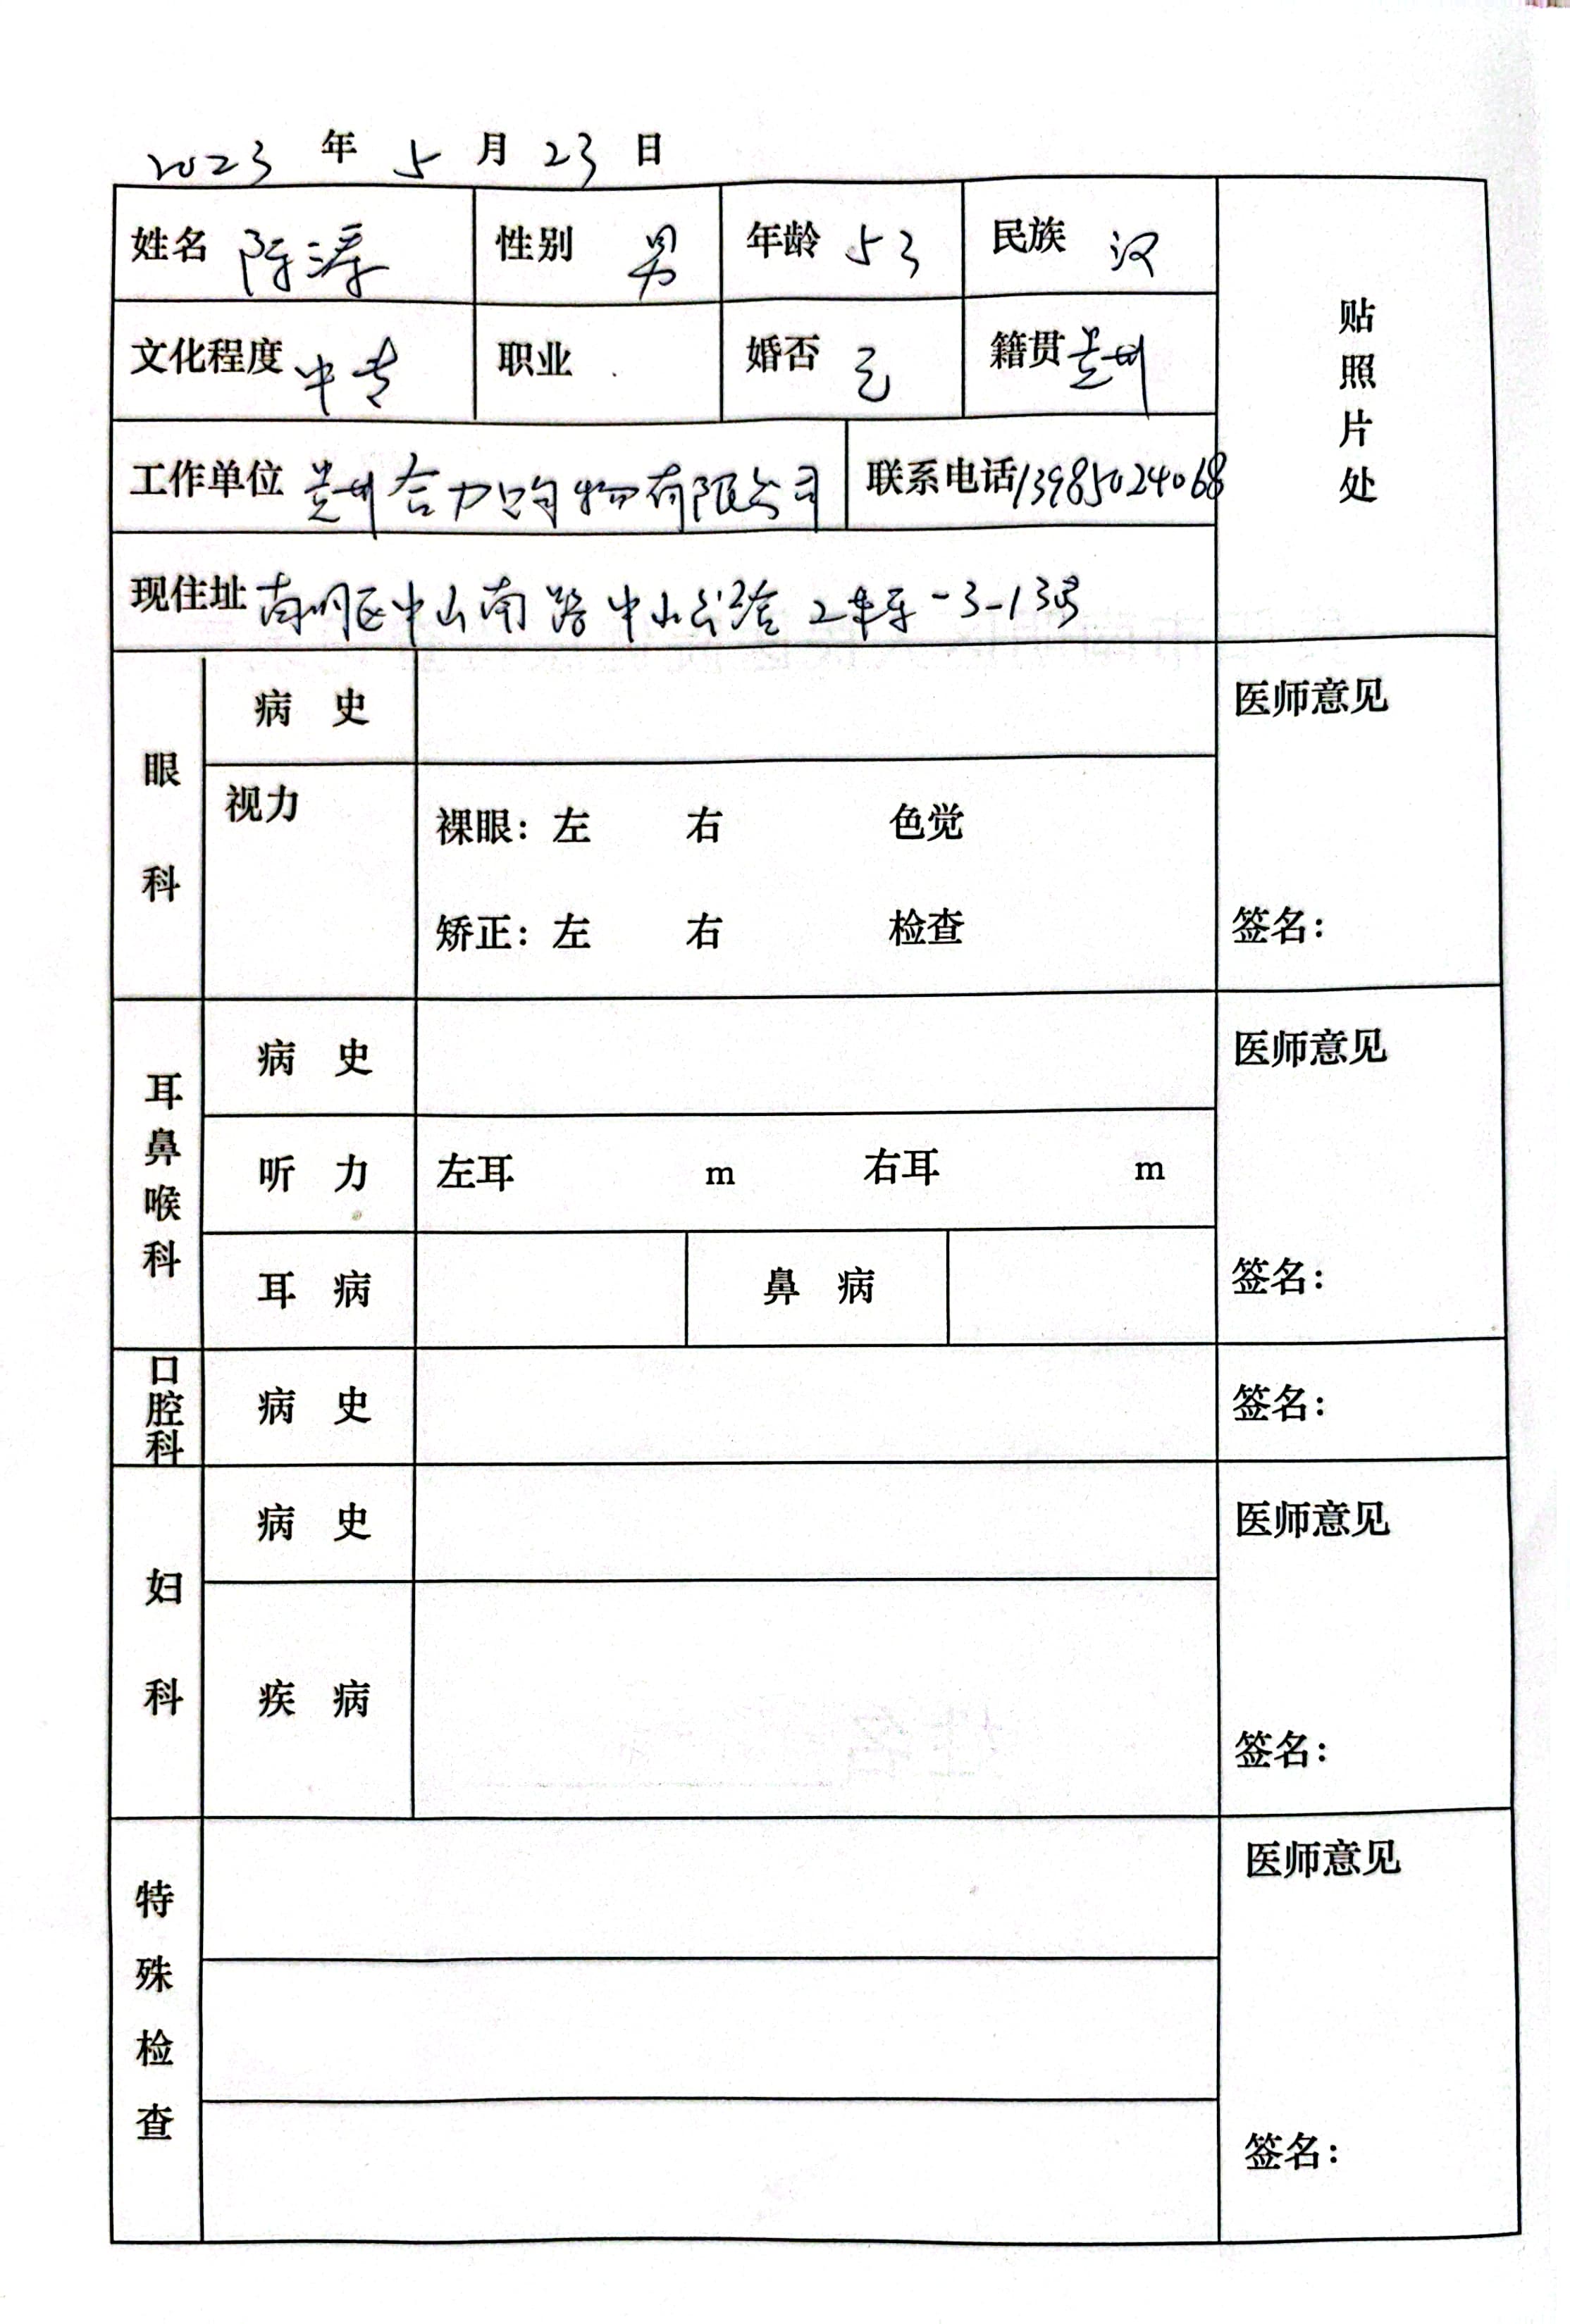 2023 年 5 月 23 日
姓名 陈 性别 男 年龄 53 民族 汉
文化程度 中专 职业 婚否 已 籍贯 贵州
贴照片处
工作单位 贵州合力购物有限公司 联系电话 13985024068
现住址 南明区中山南路中山公 2单元-3-13号
眼科
病史
医师意见
视力
裸眼：左 右 色觉
矫正：左 右 检查
签名：
耳鼻喉科
病史
医师意见
听力 左耳 m 右耳 m
耳病 鼻病
签名：
口腔科
病史
签名：
妇科
病史
医师意见
疾病
签名：
特殊检查
医师意见
签名：